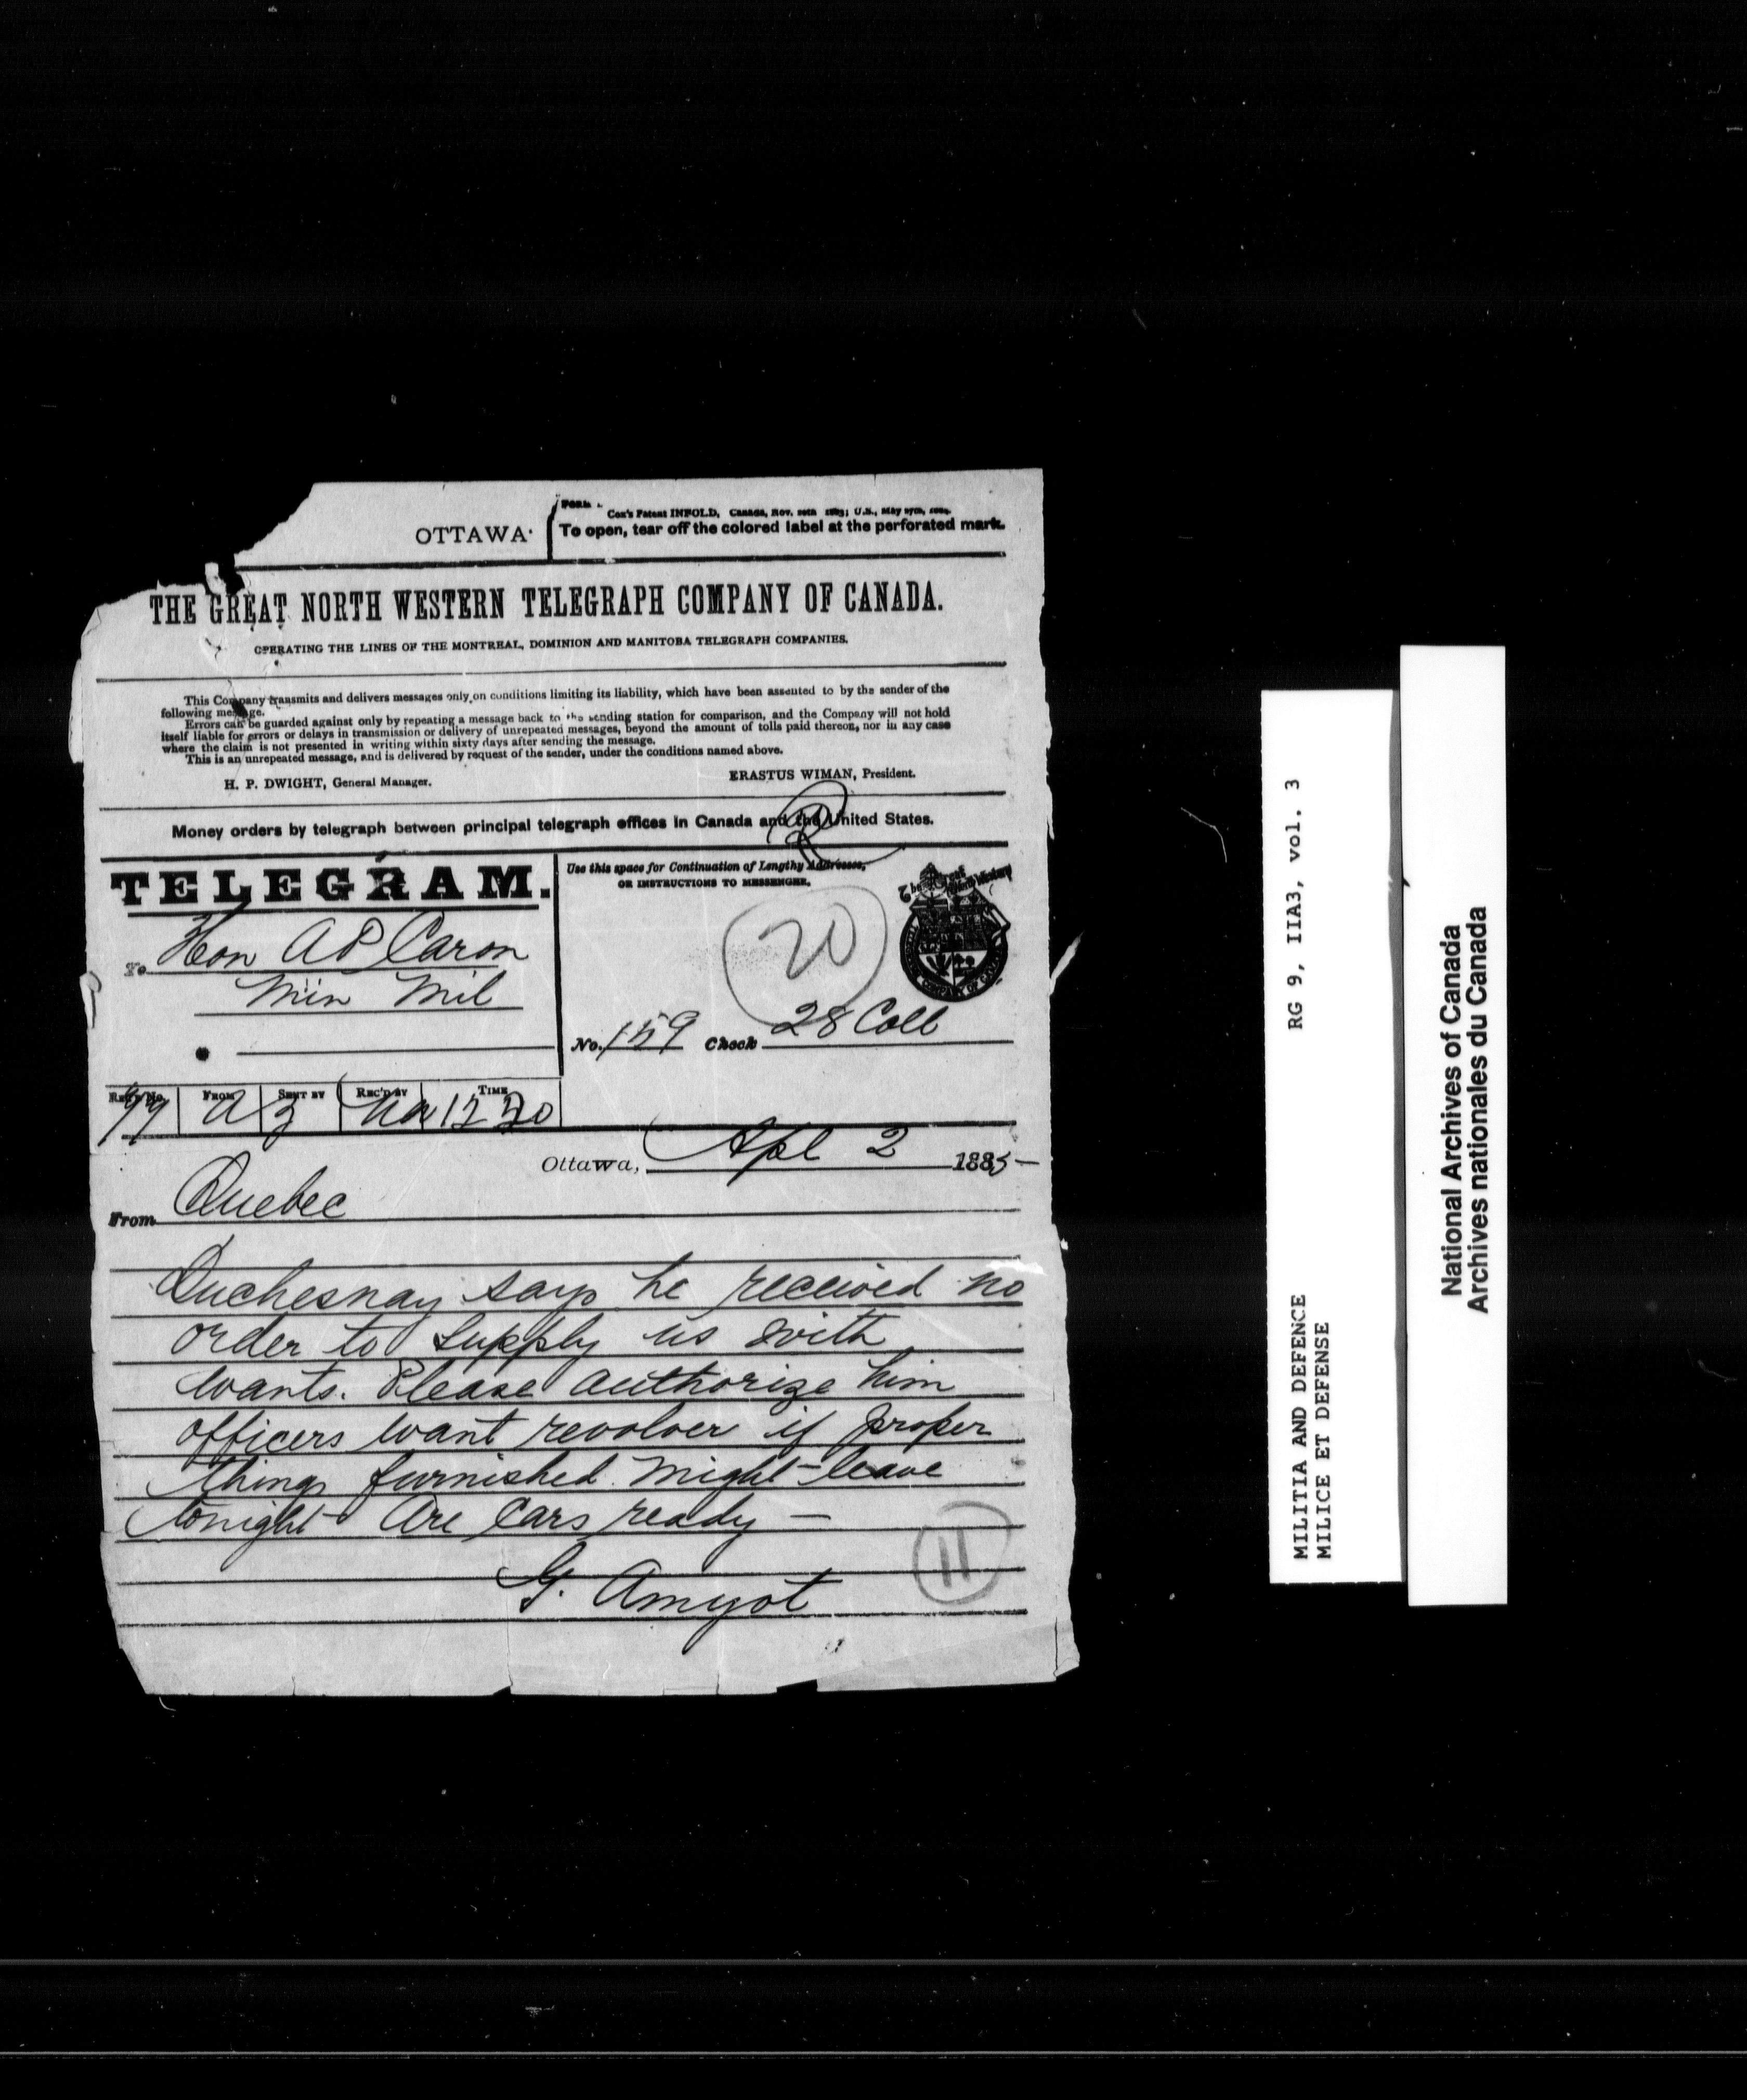 OTTAWA.
Cox's Patent INFOLD, Canada, Nov. 20th 1883; U.S., May 27th,
To open, tear off the colored label at the perforated mark.
THE GREAT NORTH WESTERN TELEGRAPH COMPANY OF CANADA.
OPERATING THE LINES OF THE MONTREAL, DOMINION AND MANITOBA TELEGRAPH COMPANIES.
This Company transmits and delivers messages only on conditions limiting its liability, which have been assented to by the sender of the
following message.
Errors can be guarded against only by repeating a message back to the sending station for comparison, and the Company will not hold
itself liable for errors or delays in transmission or delivery of unrepeated messages, beyond the amount of tolls paid thereon, nor in any case
where the claim is not presented in writing within sixty days after sending the message.
This is an unrepeated message, and is delivered by request of the sender, under the conditions named above.
H. P. DWIGHT, General Manager.
ERASTUS WIMAN, President.
Money orders by telegraph between principal telegraph offices in Canada and the United States.
TELEGRAM.
Use this space for Continuation of Lengthy Addresses,
OR INSTRUCTIONS TO MESSENGER.
20
To Hon A P Caron
Min Mil
No. 159 Check 28 Coll
FROM SENT BY REC'D BY TIME
Ottawa, Apl 2 1885
From Quebec
Duchesnay says he received no
order to supply us with
wants. Please authorize him
officers want revolver if proper
things furnished. Might leave
tonight Are cars ready —
G. Amyot
11
RG 9, IIA3, vol. 3
MILITIA AND DEFENCE
MILICE ET DEFENSE
National Archives of Canada
Archives nationales du Canada